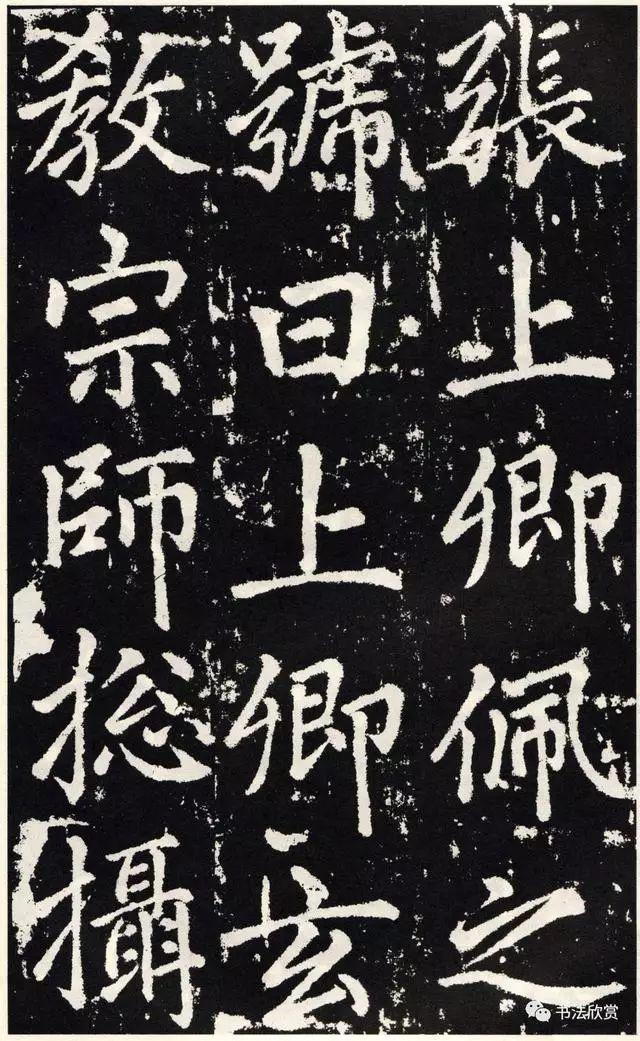 張上卿佩之
號曰上卿玄
教宗師揔攝
书法欣赏